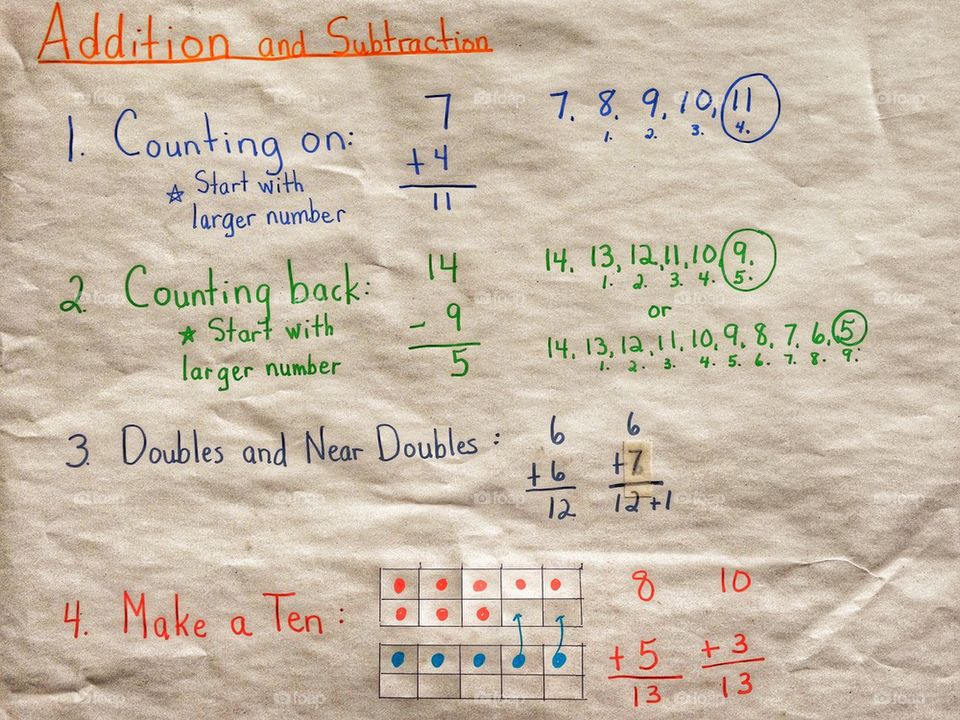 Addition and Subtraction
1. Counting on:
☆ Start with
larger number
7
+ 4
11
7. 8. 9. 10, 11
1. 2. 3. 4.
2. Counting back:
★ Start with
larger number
14
- 9
5
14. 13, 12, 11, 10, 9.
1. 2. 3. 4. 5.
or
14. 13, 12, 11, 10, 9, 8, 7, 6, 5
1. 2. 3. 4. 5. 6. 7. 8. 9.
3. Doubles and Near Doubles:
6
+ 6
12
6
+7
12+1
4. Make a Ten:
8
+ 5
13
10
+ 3
13
foap